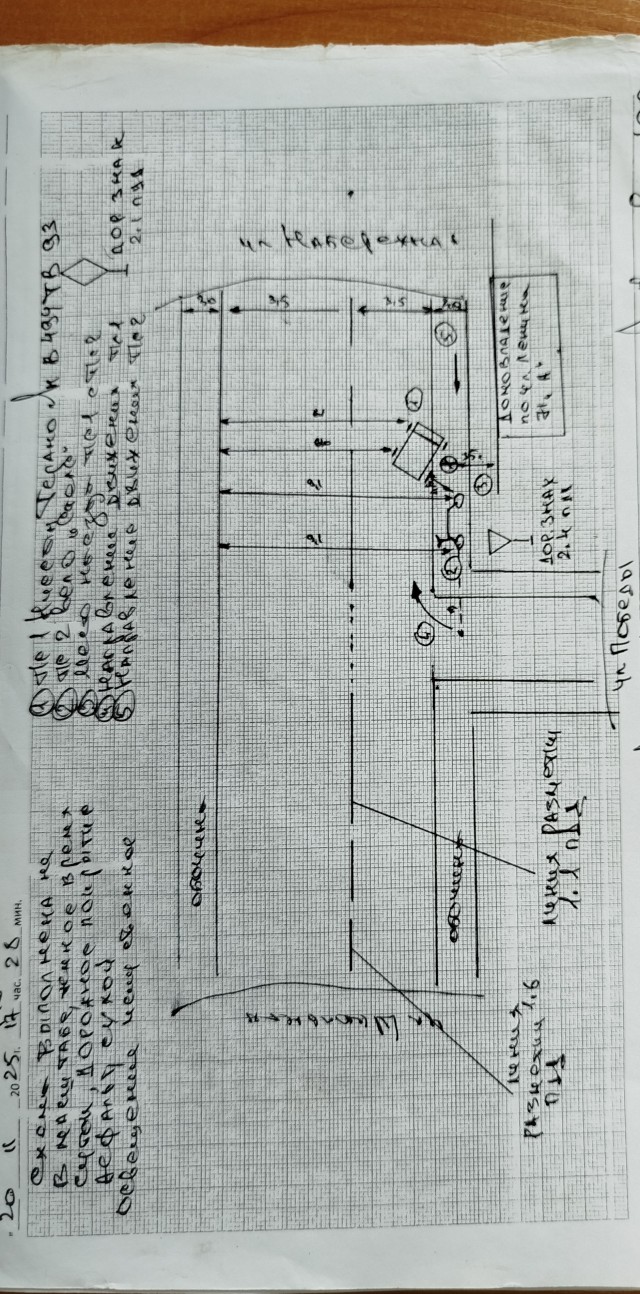 20 11 2025. 17 час. 28 мин.
Схема выполнена не
в масштабе, темное время
суток, дорожное покрытие
асфальт сухой
освещение искусственное
① ТС 1 Ниссан Террано В 434 ТВ 93
② ТС 2 вело
③ Место наезда ТС1 с ТС2
④ Направление движения ТС1
⑤ Направление движения ТС2
ДОР. ЗНАК
2.1 ПДД
ул Набережная
3,0
3,5
3,5
обочина
①
⑤
②
③
④
Домовладение
по ул Ленина
ДОР. ЗНАК
2.4 ПДД
ул Победы
обочина
ул Школьная
линия разметки
1.1 ПДД
линия
разметки 1.6
ПДД